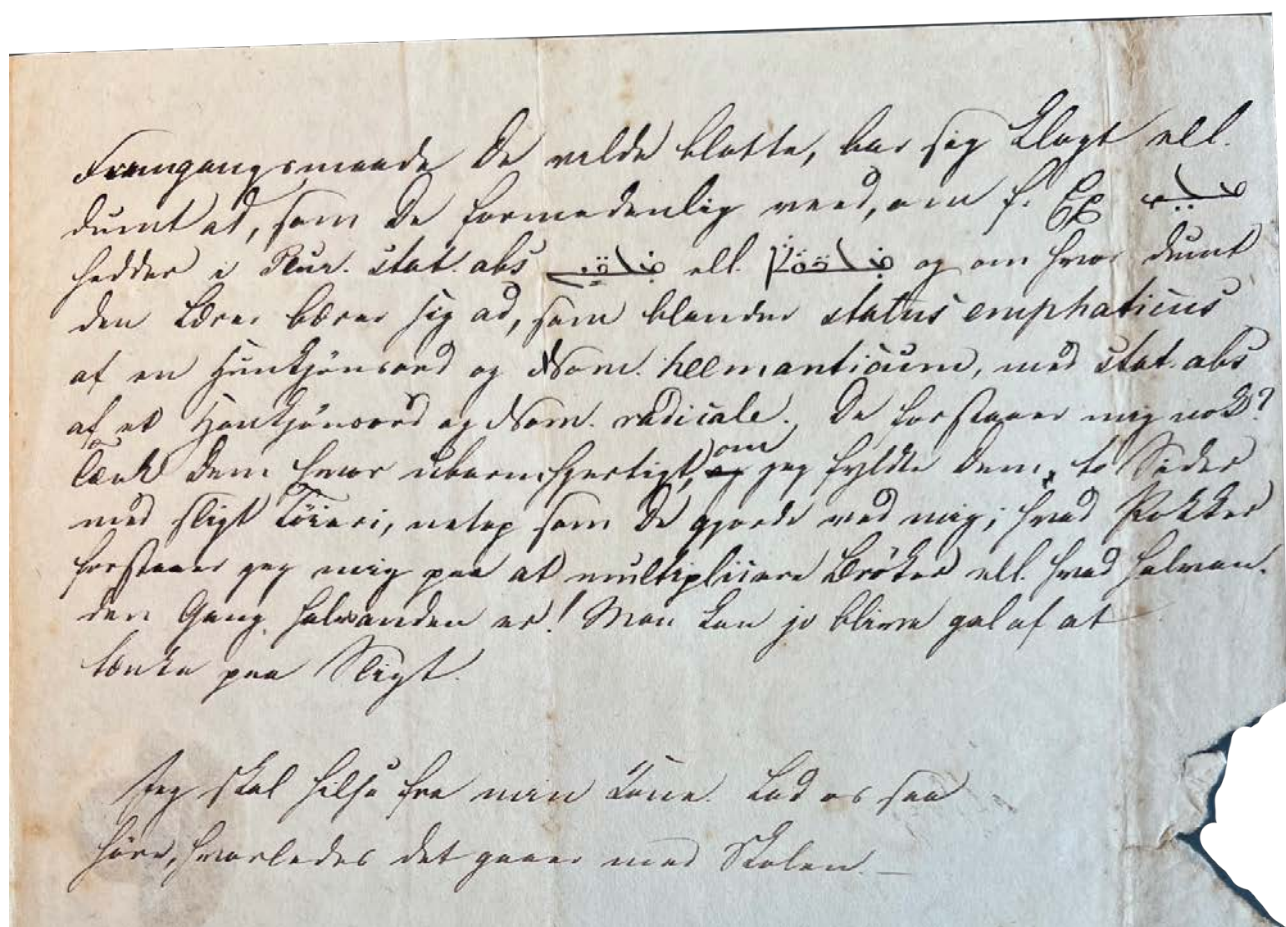 Fremgangsmaade De vilde blotte, bar sig klogt ell.
dumt ad, som De formodenlig veed, om f. Ex
hedder i Plur. stat. abs ell. og om hvor dumt
den Lærer bærer sig ad, som blander status emphaticus
af en Hunkjönsord og Nom. heemanticum, med stat. abs
af et Hankjönsord og Nom. radicale. De forstaaer mig nok?
Tænk Dem hvor ubarmhjertigt, om jeg fyldte Dem to Sider
med sligt Töieri, netop som De gjorde ved mig; hvad Pokker
forstaaer jeg mig paa at multiplicere Bröker ell. hvad halvan-
den Gang halvanden er! Man kan jo blive gal af at
tænke paa Sligt.
Jeg skal hilse fra min Kone. Lad os saa
höre, hvorledes det gaaer med Skolen. —